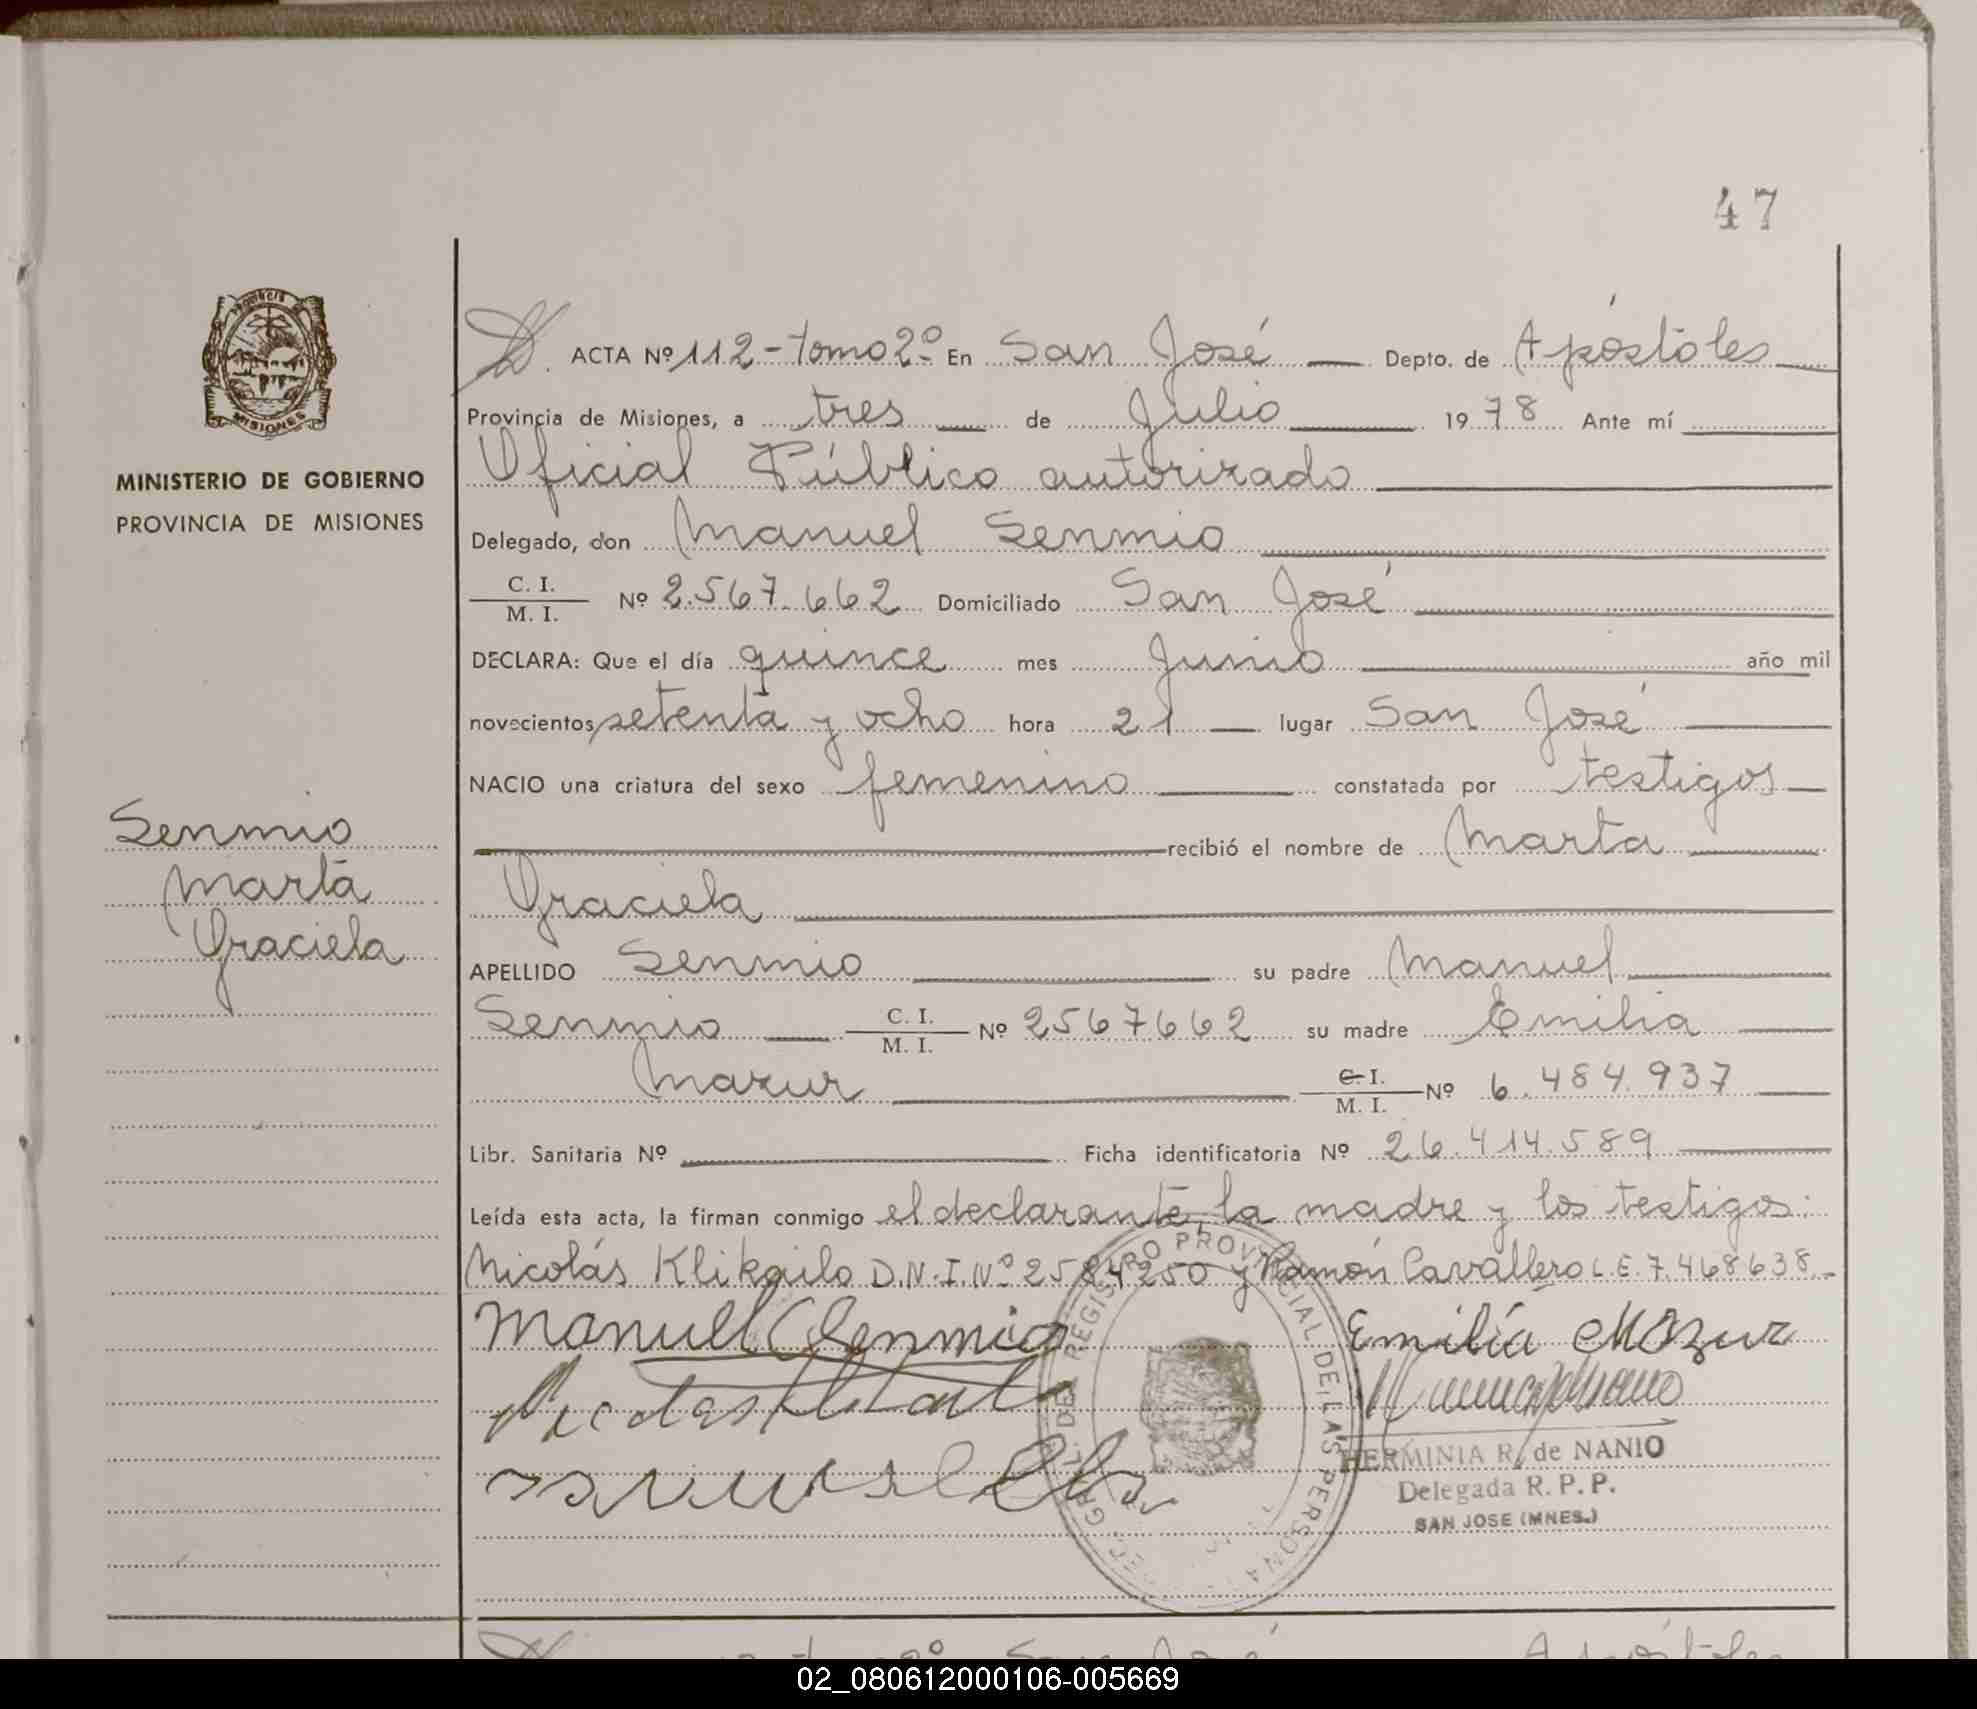 47
PROVINCIA
MISIONES
MINISTERIO DE GOBIERNO
PROVINCIA DE MISIONES
Senmio
Marta
Graciela
ACTA Nº 112 - tomo 2º En San José Depto. de Apóstoles
Provincia de Misiones, a tres de Julio 1978 Ante mí
Oficial Público autorizado
Delegado, don Manuel Senmio
C. I.
M. I. Nº 2.567.662 Domiciliado San José
DECLARA: Que el día quince mes Junio año mil
novecientos setenta y ocho hora 21 lugar San José
NACIO una criatura del sexo femenino constatada por testigos
recibió el nombre de Marta
Graciela
APELLIDO Senmio su padre Manuel
Senmio C. I.
M. I. Nº 2567662 su madre Emilia
Mazur C. I.
M. I. Nº 6.484.937
Libr. Sanitaria Nº Ficha identificatoria Nº 26.414.589
Leída esta acta, la firman conmigo el declarante, la madre y los testigos:
Nicolás Klikailo D.N.I. Nº 2584250 y Ramón Cavallero L.E. 7.468638
Manuel Senmio Emilia Mazur
REGISTRO PROVINCIAL DE LAS PERSONAS
HERMINIA R. de NANIO
Delegada R. P. P.
SAN JOSE (MNES.)
02_080612000106-005669